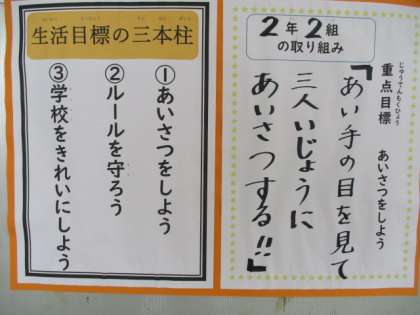 生活目標の三本柱
①あいさつをしよう
②ルールを守ろう
③学校をきれいにしよう
2年2組
の取り組み
じゅうてんもくひょう
重点目標 あいさつをしよう
「あい手の目を見て
三人いじょうに
あいさつする!!」